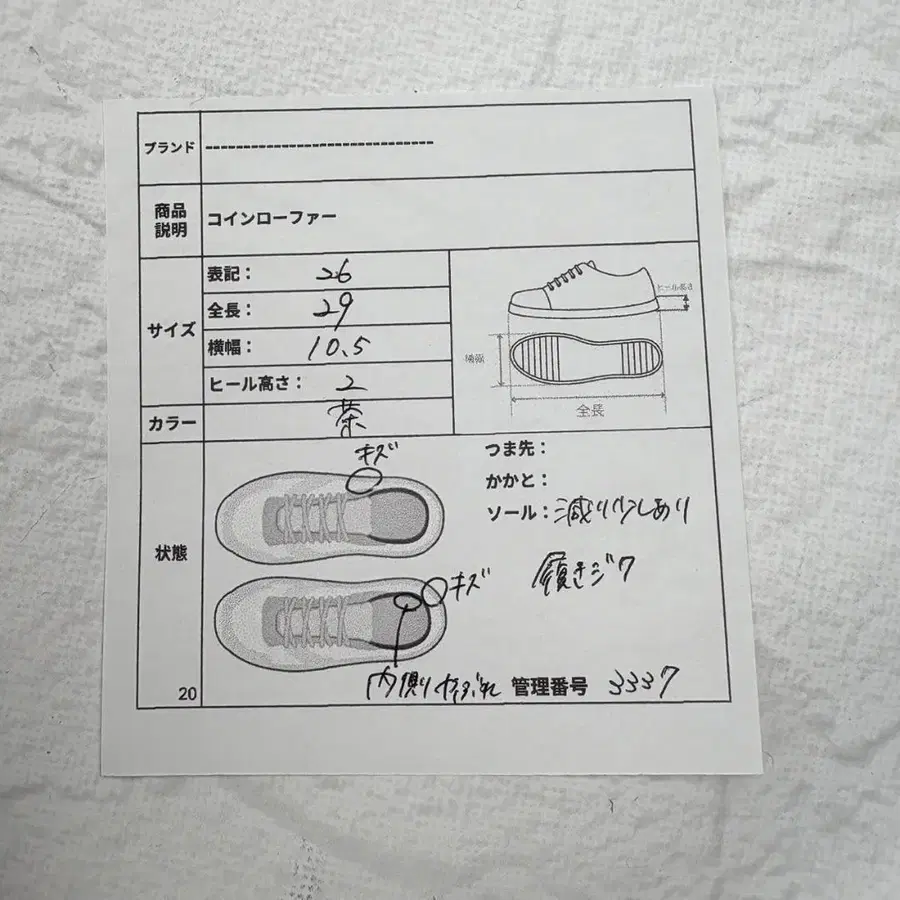 ブランド ------------------------------
商品説明 コインローファー
サイズ
表記： 26
全長： 29
横幅： 10.5
ヒール高さ： 2
ヒール高さ
横幅
全長
カラー 茶
状態
キズ
キズ
内側やぶれ
つま先：
かかと：
ソール：減り少しあり
履きジワ
20
管理番号 3337